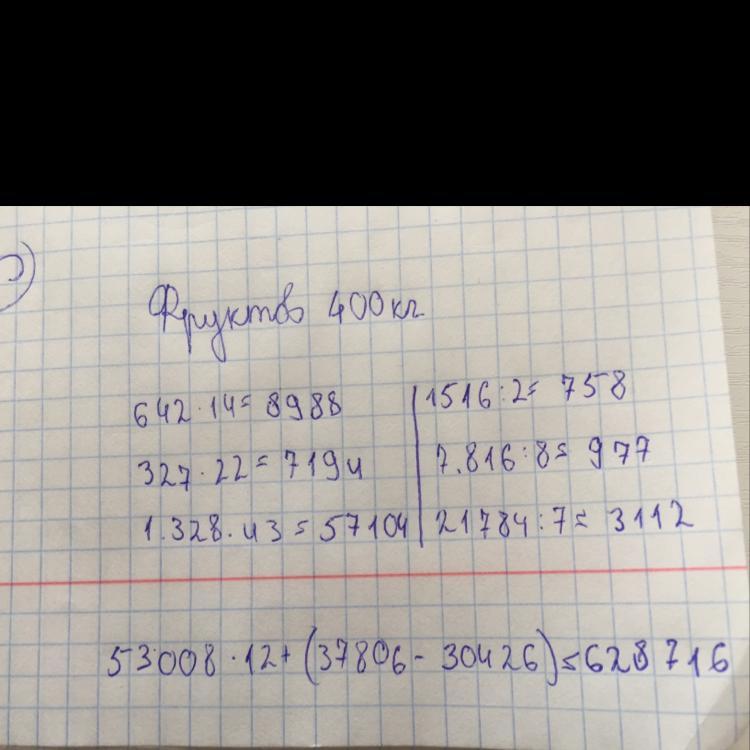 Фруктов 400кг
642·14=8988 | 1516:2= 758
327·22=7194 | 7.816:8= 977
1.328·43=57104 | 21784:7= 3112
53008·12+(37806-30426)=628716